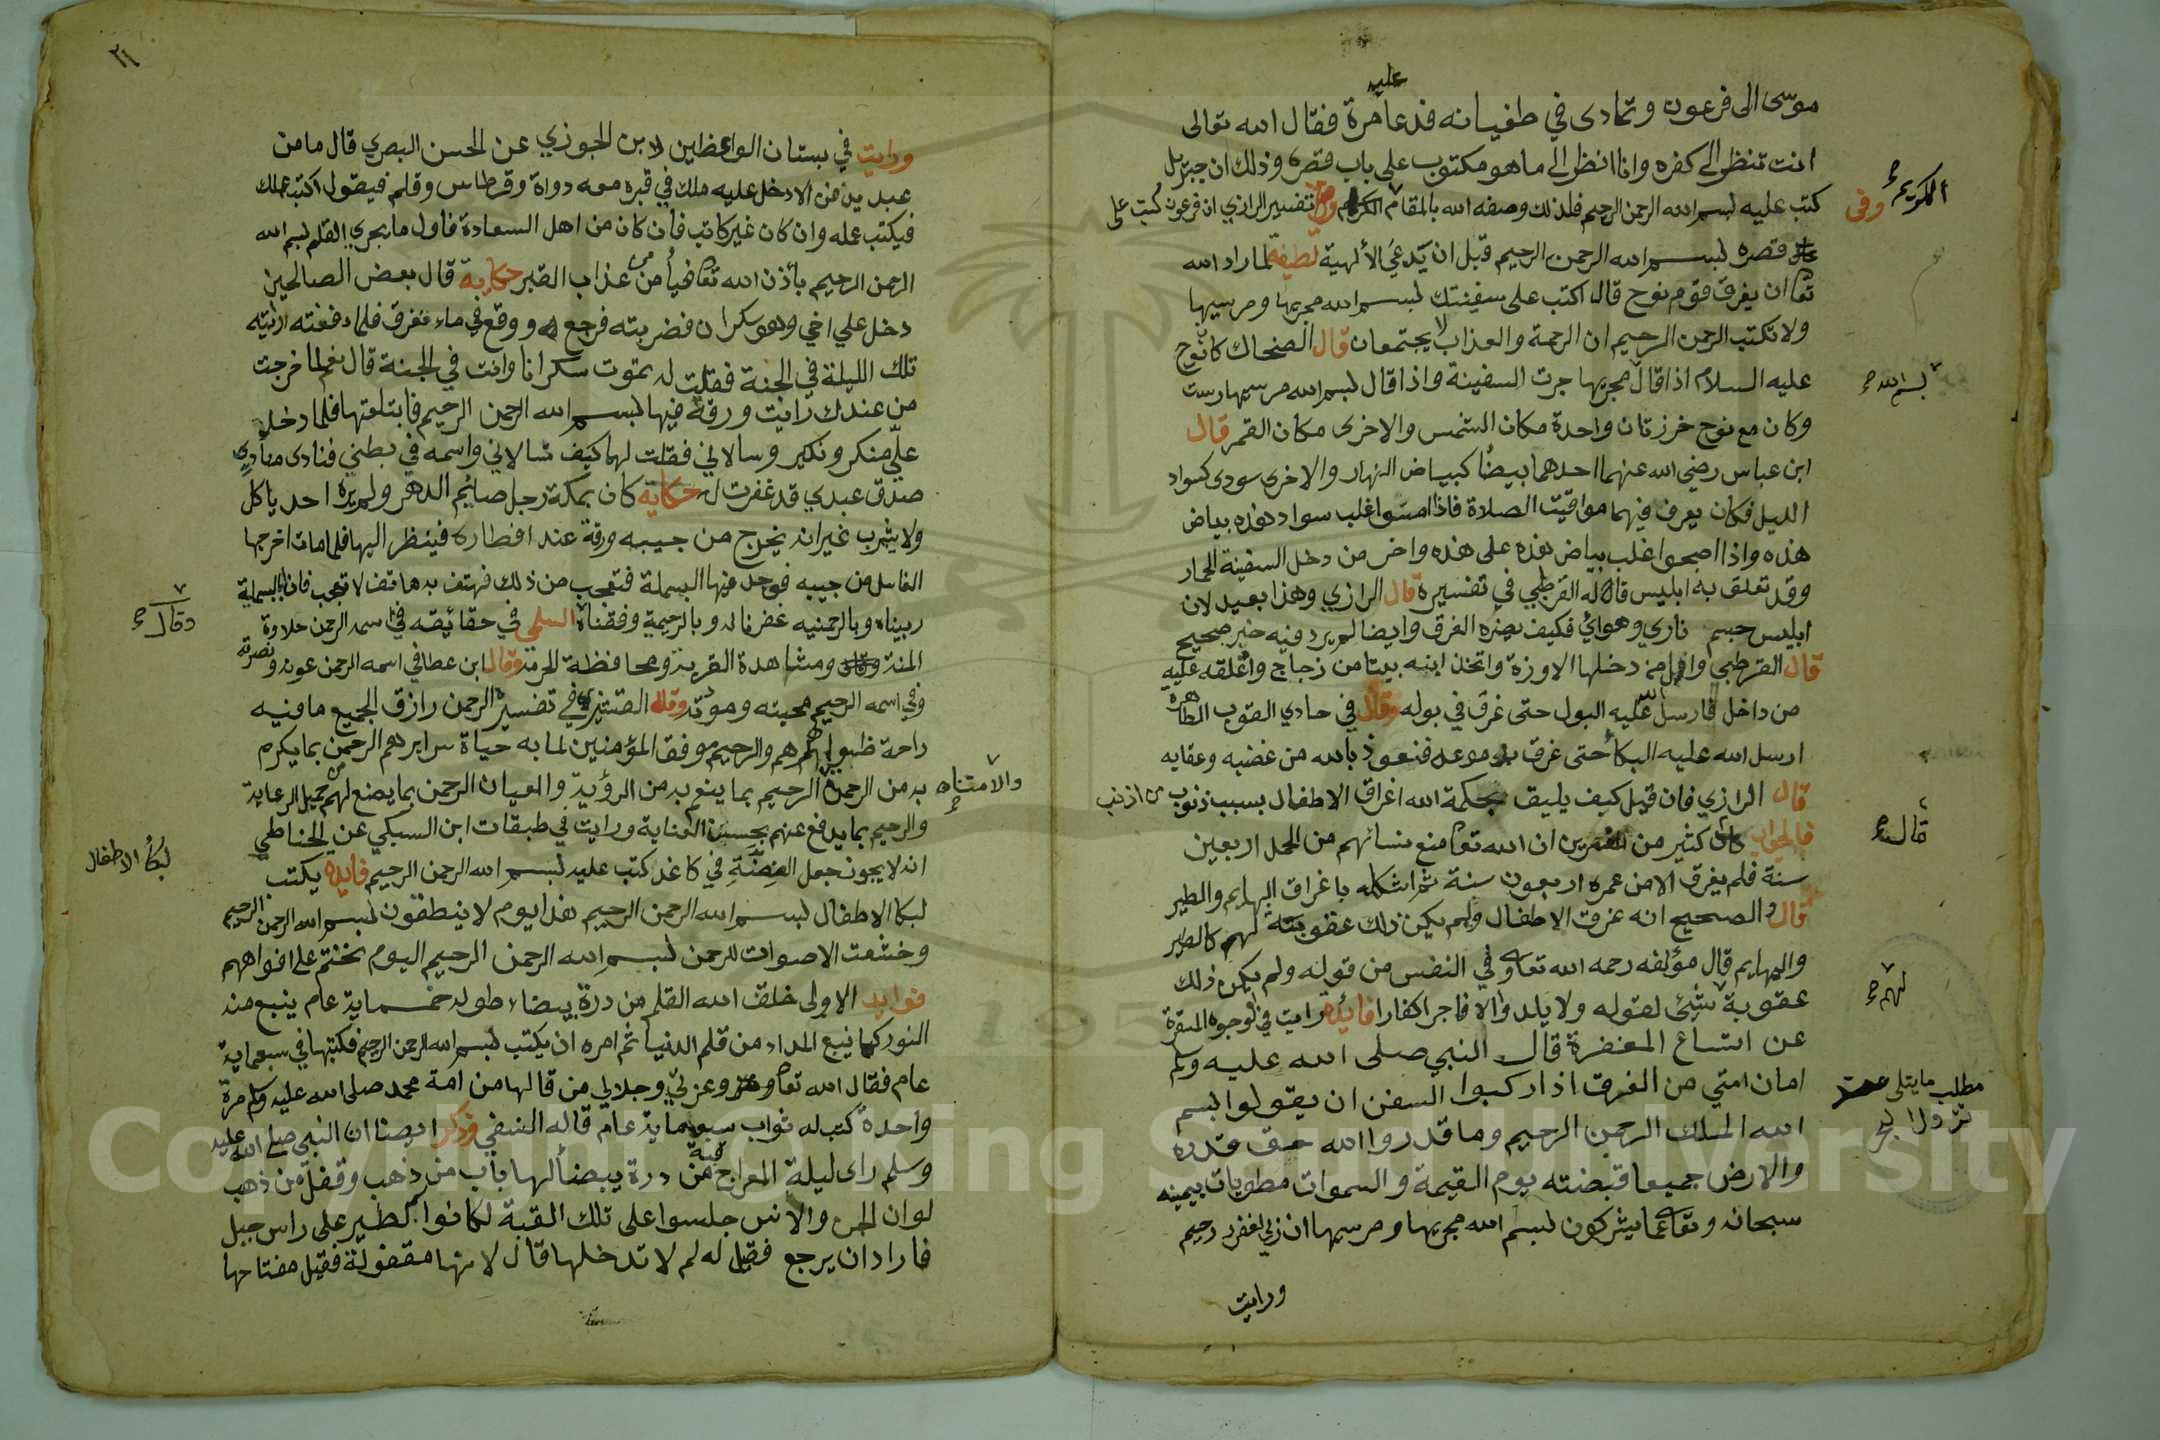 عليه
موسى الى فرعون وتمادى في طغيانه فدعا مرة فقال الله تعالى
انت تنظر الى كفره وانا انظر الى ما هو مكتوب على باب قصره وذلك ان جبريل
كتب عليه بسم الله الرحمن الرحيم فلذلك وصفه الله بالمقام تفسير الرازي ان فرعون كتب على
الكريم
وفى
قصره بسم الله الرحمن الرحيم قبل ان يدعي الالهية لطيفة لما اراد الله
تعا ان يغرق قوم نوح قال اكتب على سفينتك بسم الله مجريها ومرسيها
ولا تكتب الرحمن الرحيم ان الرحمة والعذاب لا يجتمعان قال الضحاك كان نوح
عليه السلام اذا قال مجريها جرت السفينة واذا قال بسم الله مرسيها رست
بسم الله
وكان مع نوح خرزتان واحدة مكان الشمس والاخرى مكان القمر قال
ابن عباس رضي الله عنهما احدهما بيضأ كبياض النهار والاخرى سودى كسواد
الليل فكان يعرف فيهما مواقيت الصلاة فاذا امسوا غلب سواد هذه بياض
هذه واذا اصبحوا غلب بياض هذه على هذه واخر من دخل السفينة الحمار
وقد تعلق به ابليس قاله القرطبي في تفسيره قال الرازي وهذا بعيد لان
ابليس جسم ناري وهوائي فكيف يضره الغرق وايضا لم يرد فيه خبر صحيح
قال القرطبي واول من دخلها الاوزة واتخذ ابنه بيتا من زجاج واغلقه عليه
من داخل فارسل الله عليه البول حتى غرق في بوله وقال في حادي القلوب الطاهره
ارسل الله عليه البكأ حتى غرق بدموعه فنعوذ بالله من غضبه وعقابه
قال الرازي فان قيل كيف يليق بحكمة الله اغراق الاطفال بسبب ذنوب من اذنب
فالجواب كثير من المفسرين ان الله تعا منع نسائهم من الحمل اربعين
قال
سنة فلم يغرق الا من عمره اربعون سنة ثم اشكله باغراق البهايم والطير
قال والصحيح انه غرق الاطفال ولم يكن ذلك عقوبته لهم كالطير
والبهايم قال مؤلفه رحمه الله تعا وفي النفس من قوله ولم يكن ذلك
لهم
عقوبة شيئ لقوله ولا يلدوا الا فاجرا كفارا فائده رايت في الوجوه المسفرة
عن اتساع المغفرة قال النبي صلى الله عليه وسلم
امان امتي من الغرق اذا ركبوا السفن ان يقولوا بسم
مطلب ما يتلى عند
نزول البحر
الله الملك الرحمن الرحيم وما قدروا الله حق قدره
والارض جميعا قبضته يوم القيمة والسموات مطويات بيمينه
سبحانه وتعا عما يشركون بسم الله مجريها ومرسيها ان ربي لغفور رحيم
ورايت
٢١
ورايت في بستان الواعظين لابن الجوزي عن الحسن البصري قال ما من
عبد مومن الا دخل عليه ملك في قبره معه دواة وقرطاس وقلم فيقول اكتب عملك
فيكتب عمله وان كان غير كاتب فأن كان من اهل السعادة فاول ما يجري القلم بسم الله
الرحمن الرحيم بأذن الله تعا فيأمن من عذاب القبر حكاية قال بعض الصالحين
دخل علي اخي وهو سكران فضربته فرجع ووقع في ماء فغرق فلما دفنته رايته
تلك الليلة في الجنة فقلت له تموت سكرانا وانت في الجنة قال نعم لما خرجت
من عندك رايت ورقة فيها بسم الله الرحمن الرحيم فابتلعتها فلما دخل
علي منكر ونكير وسالاني فقلت لهما كيف تسالاني واسمه في بطني فنادى منادي
صدق عبدي قد غفرت له حكاية كان بمكة رجل صائم الدهر ولم يره احد ياكل
ولا يشرب غير انه يخرج من جيبه ورقة عند افطاره فينظر اليها فلما مات اخرجها
الغاسل من جيبه فوجد فيها البسملة فتعجب من ذلك فهتف به هاتف لا تعجب فانا بالبسملة
ربيناه وبالرحمنيه غفرنا له وبالرحيمية وفقناه السلمي في حقائيقه في اسمه الرحمن حلاوة
وقال
المنة ومشاهدة القربة ومحافظة للحرمة وقال ابن عطا في اسمه الرحمن عونه ونصرته
وفي اسمه الرحيم محبته ومودته وقال القشيري في تفسير الرحمن رازق الجميع ما فيه
راحة ظواهرهم والرحيم موفق المؤمنين لما به حياة سرايرهم الرحمن بما يكرم
به من الرحمن الرحيم بما ينعم به من الرؤية والعيان الرحمن بما يصنع لهم من جميل الرعاية
والامتناه
والرحيم بما يدفع عنهم بحسن العناية ورايت في طبقات ابن السبكي عن الحناطي
انه لا يجوز جعل الفضة في كاغد كتب عليه بسم الله الرحمن الرحيم فايده يكتب
لبكأ الاطفال
لبكا الاطفال بسم الله الرحمن الرحيم هذا يوم لا ينطقون بسم الله الرحمن الرحيم
وخشعت الاصوات للرحمن بسم الله الرحمن الرحيم اليوم نختم على افواههم
فوايد الاولى خلق الله القلم من درة بيضاء طوله خمسماية عام ينبع منه
النور كما ينبع المداد من قلم الدنيا ثم امره ان يكتب بسم الله الرحمن الرحيم فكتبها في سبعماية
عام فقال الله تعا وعزتي وجلالي من قالها من امة محمد صلى الله عليه وسلم مرة
واحدة كتب له ثواب سبعماية عام قاله النسفي وذكر ايضا ان النبي صلى الله عليه
وسلم راى ليلة المعراج قبة من درة بيضأ لها باب من ذهب وقفل من ذهب
لو ان الجن والانس جلسوا على تلك القبة لكانوا كطير على راس جبل
فاراد ان يرجع فقيل له لم لا تدخلها قال لانها مقفولة فقيل مفتاحها
Copyright © King Saud University